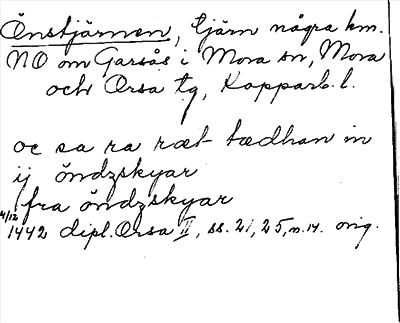 Önstjärnen, tjärn några km.
NO om Garsås i Mora sn, Mora
och Orsa tg, Kopparb. l.
oc sa ra ræt tædhan in
ij öndzskyar
fra öndzskyar
4/12 1442 dipl. Orsa II, ss. 21, 25, n. 14. orig.